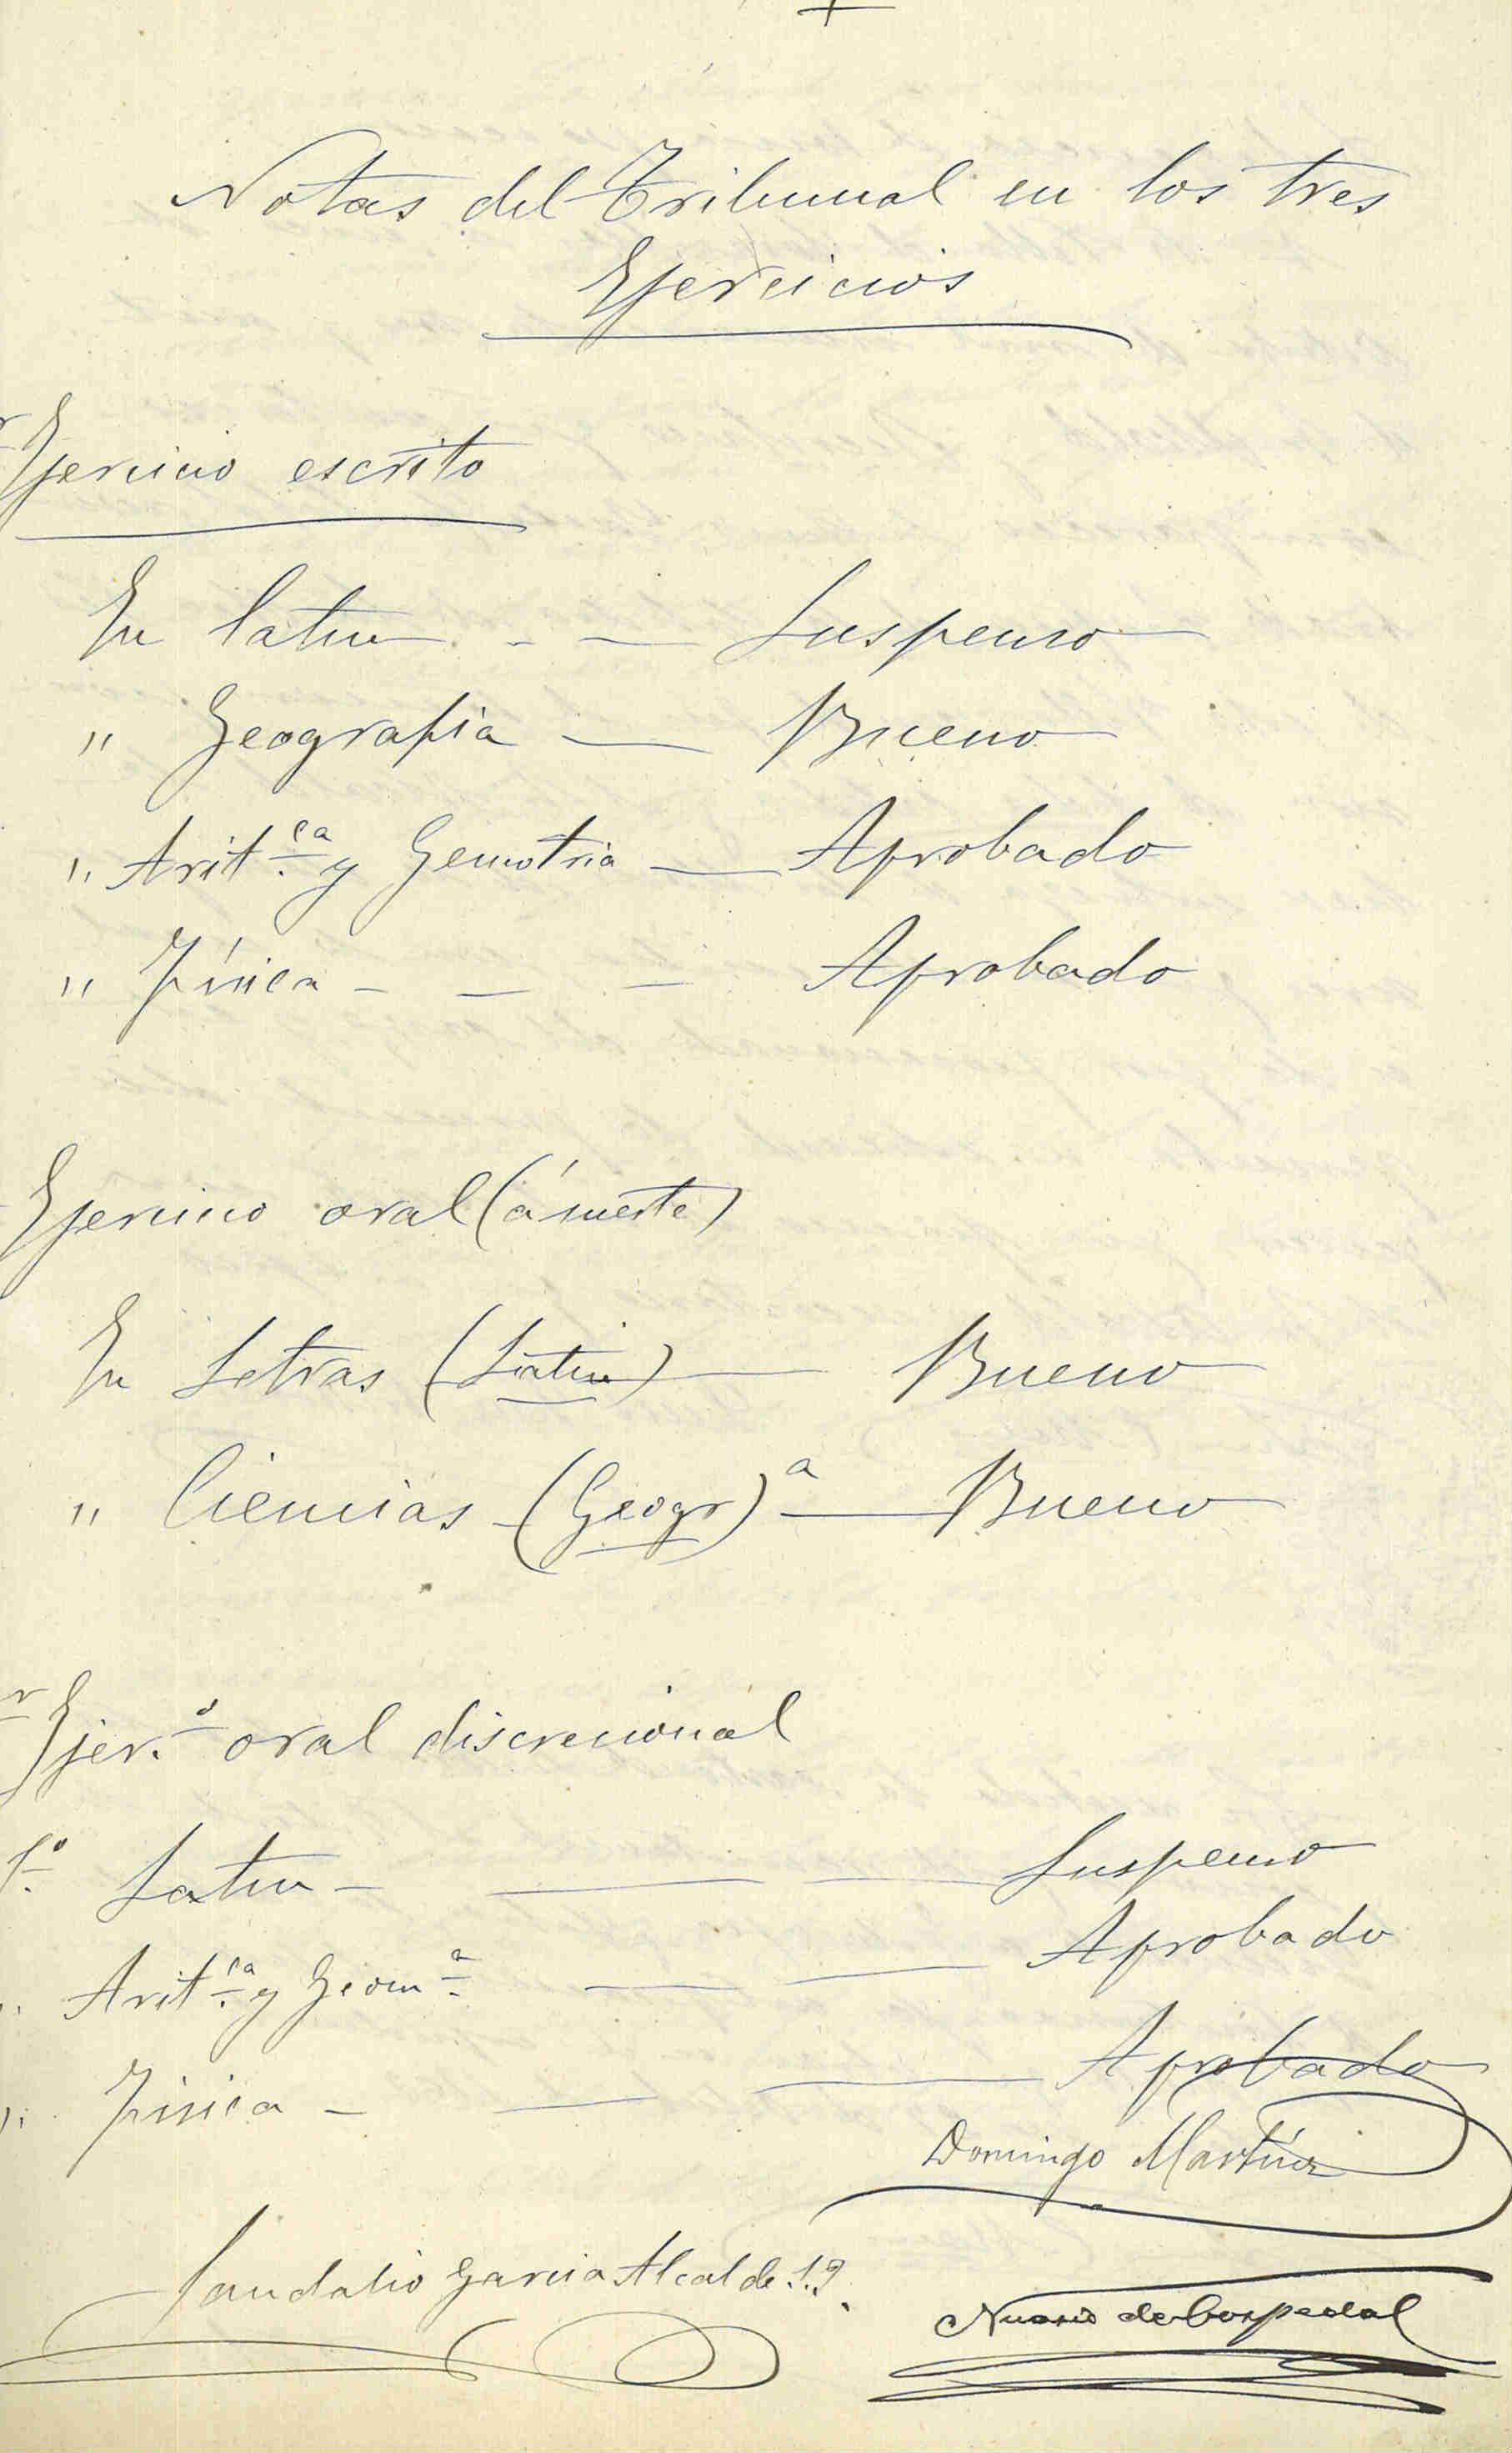 +
Notas del Tribunal en los tres
Ejercicios
r Ejercicio escrito
En latin - — Suspenso
" Geografia — Bueno
" Arit.ca y Gemotria — Aprobado
" Física - — — Aprobado
Ejercicio oral (á suerte)
En Letras (Latin) — Bueno
" Ciencias (Geogr)a — Bueno
r Ejer.o oral discrecional
Latin - — — Suspenso
" Arit.ca y Geom.a — — Aprobado
" Fisica - — — Aprobado
Domingo Martínez
Sandalio Garcia Alcalde
de Cospedal